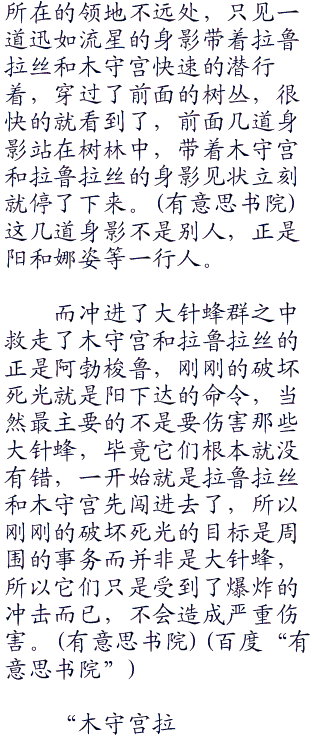 所在的领地不远处，只见一
道迅如流星的身影带着拉鲁
拉丝和木守宫快速的潜行
着，穿过了前面的树丛，很
快的就看到了，前面几道身
影站在树林中，带着木守宫
和拉鲁拉丝的身影见状立刻
就停了下来。(有意思书院)
这几道身影不是别人，正是
阳和娜姿等一行人。
而冲进了大针蜂群之中
救走了木守宫和拉鲁拉丝的
正是阿勃梭鲁，刚刚的破坏
死光就是阳下达的命令，当
然最主要的不是要伤害那些
大针蜂，毕竟它们根本就没
有错，一开始就是拉鲁拉丝
和木守宫先闯进去了，所以
刚刚的破坏死光的目标是周
围的事务而并非是大针蜂，
所以它们只是受到了爆炸的
冲击而已，不会造成严重伤
害。(有意思书院)(百度“有
意思书院”)
“木守宫拉